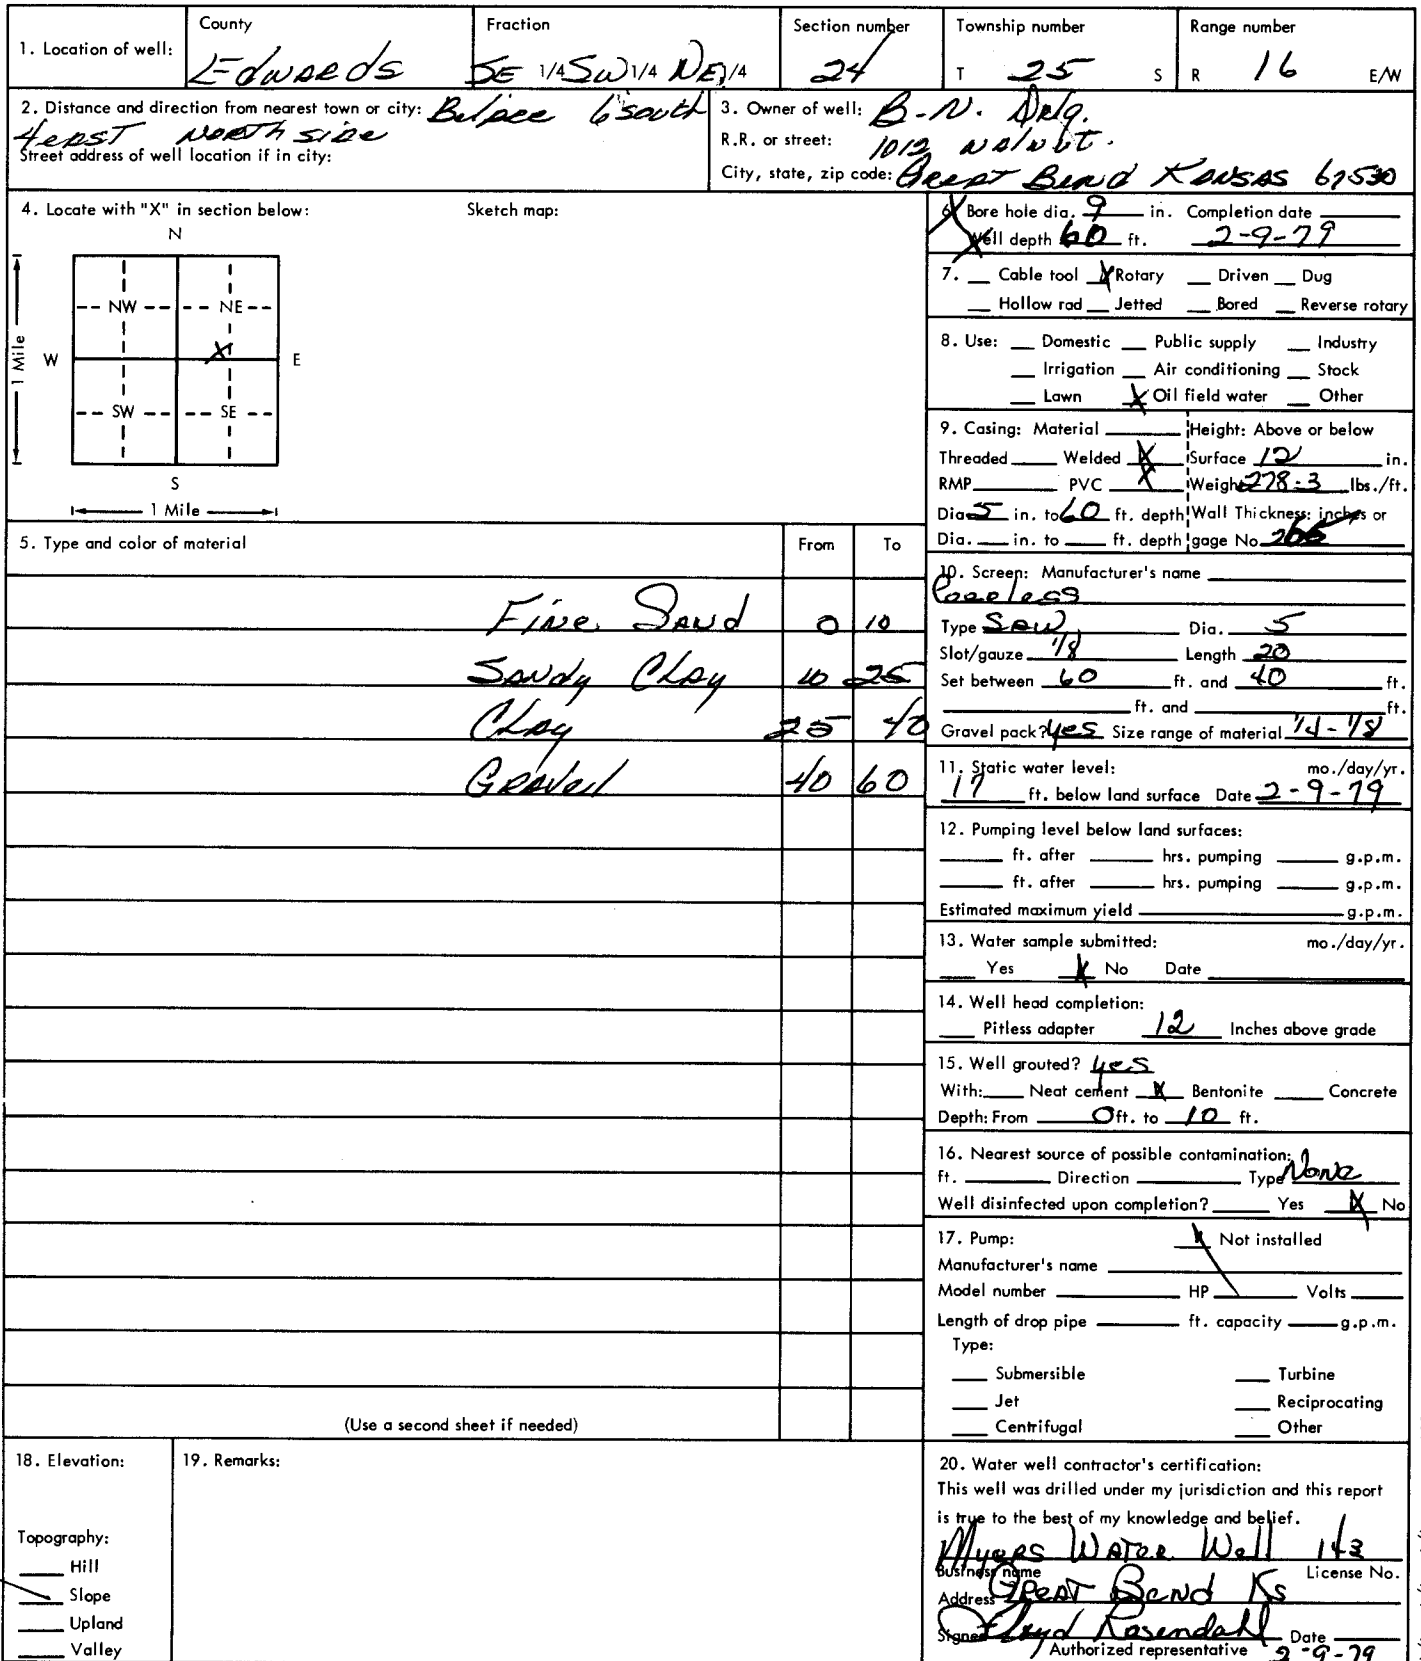 1. Location of well: County Edwards Fraction SE 1/4 SW 1/4 NE 1/4 Section number 24 Township number T 25 S Range number R 16 E/W
2. Distance and direction from nearest town or city: 6 south
4 east north side
Street address of well location if in city:
3. Owner of well: B.N. Drlg.
R.R. or street: 1012 Walnut.
City, state, zip code: Great Bend Kansas 67530
4. Locate with "X" in section below: Sketch map:
N
NW NE
W X E
SW SE
S
1 Mile
1 Mile
5. Type and color of material From To
Fine Sand 0 10
Sandy Clay 10 25
Clay 25 40
Gravel 40 60
(Use a second sheet if needed)
6. Bore hole dia. 9 in. Completion date
Well depth 60 ft. 2-9-79
7. Cable tool X Rotary Driven Dug
Hollow rad Jetted Bored Reverse rotary
8. Use: Domestic Public supply Industry
Irrigation Air conditioning Stock
Lawn X Oil field water Other
9. Casing: Material Height: Above or below
Threaded Welded X Surface 12 in.
RMP PVC X Weight 278.3 lbs./ft.
Dia. 5 in. to 60 ft. depth Wall Thickness: inches or
Dia. in. to ft. depth gage No.
10. Screen: Manufacturer's name
Type Saw Dia. 5
Slot/gauze 1/8 Length 20
Set between 60 ft. and 40 ft.
ft. and ft.
Gravel pack? yes Size range of material 1/4 - 1/8
11. Static water level: mo./day/yr.
17 ft. below land surface Date 2-9-79
12. Pumping level below land surfaces:
ft. after hrs. pumping g.p.m.
ft. after hrs. pumping g.p.m.
Estimated maximum yield g.p.m.
13. Water sample submitted: mo./day/yr.
Yes X No Date
14. Well head completion:
Pitless adapter 12 Inches above grade
15. Well grouted? yes
With: Neat cement X Bentonite Concrete
Depth: From 0 ft. to 10 ft.
16. Nearest source of possible contamination:
ft. Direction Type None
Well disinfected upon completion? Yes X No
17. Pump: Not installed
Manufacturer's name
Model number HP Volts
Length of drop pipe ft. capacity g.p.m.
Type:
Submersible Turbine
Jet Reciprocating
Centrifugal Other
18. Elevation:
Topography:
Hill
Slope
Upland
Valley
19. Remarks:
20. Water well contractor's certification:
This well was drilled under my jurisdiction and this report
is true to the best of my knowledge and belief.
Myers Water Well 143
Business name License No.
Address Great Bend Ks
Signed Floyd Rosendahl Date
Authorized representative 2-9-79